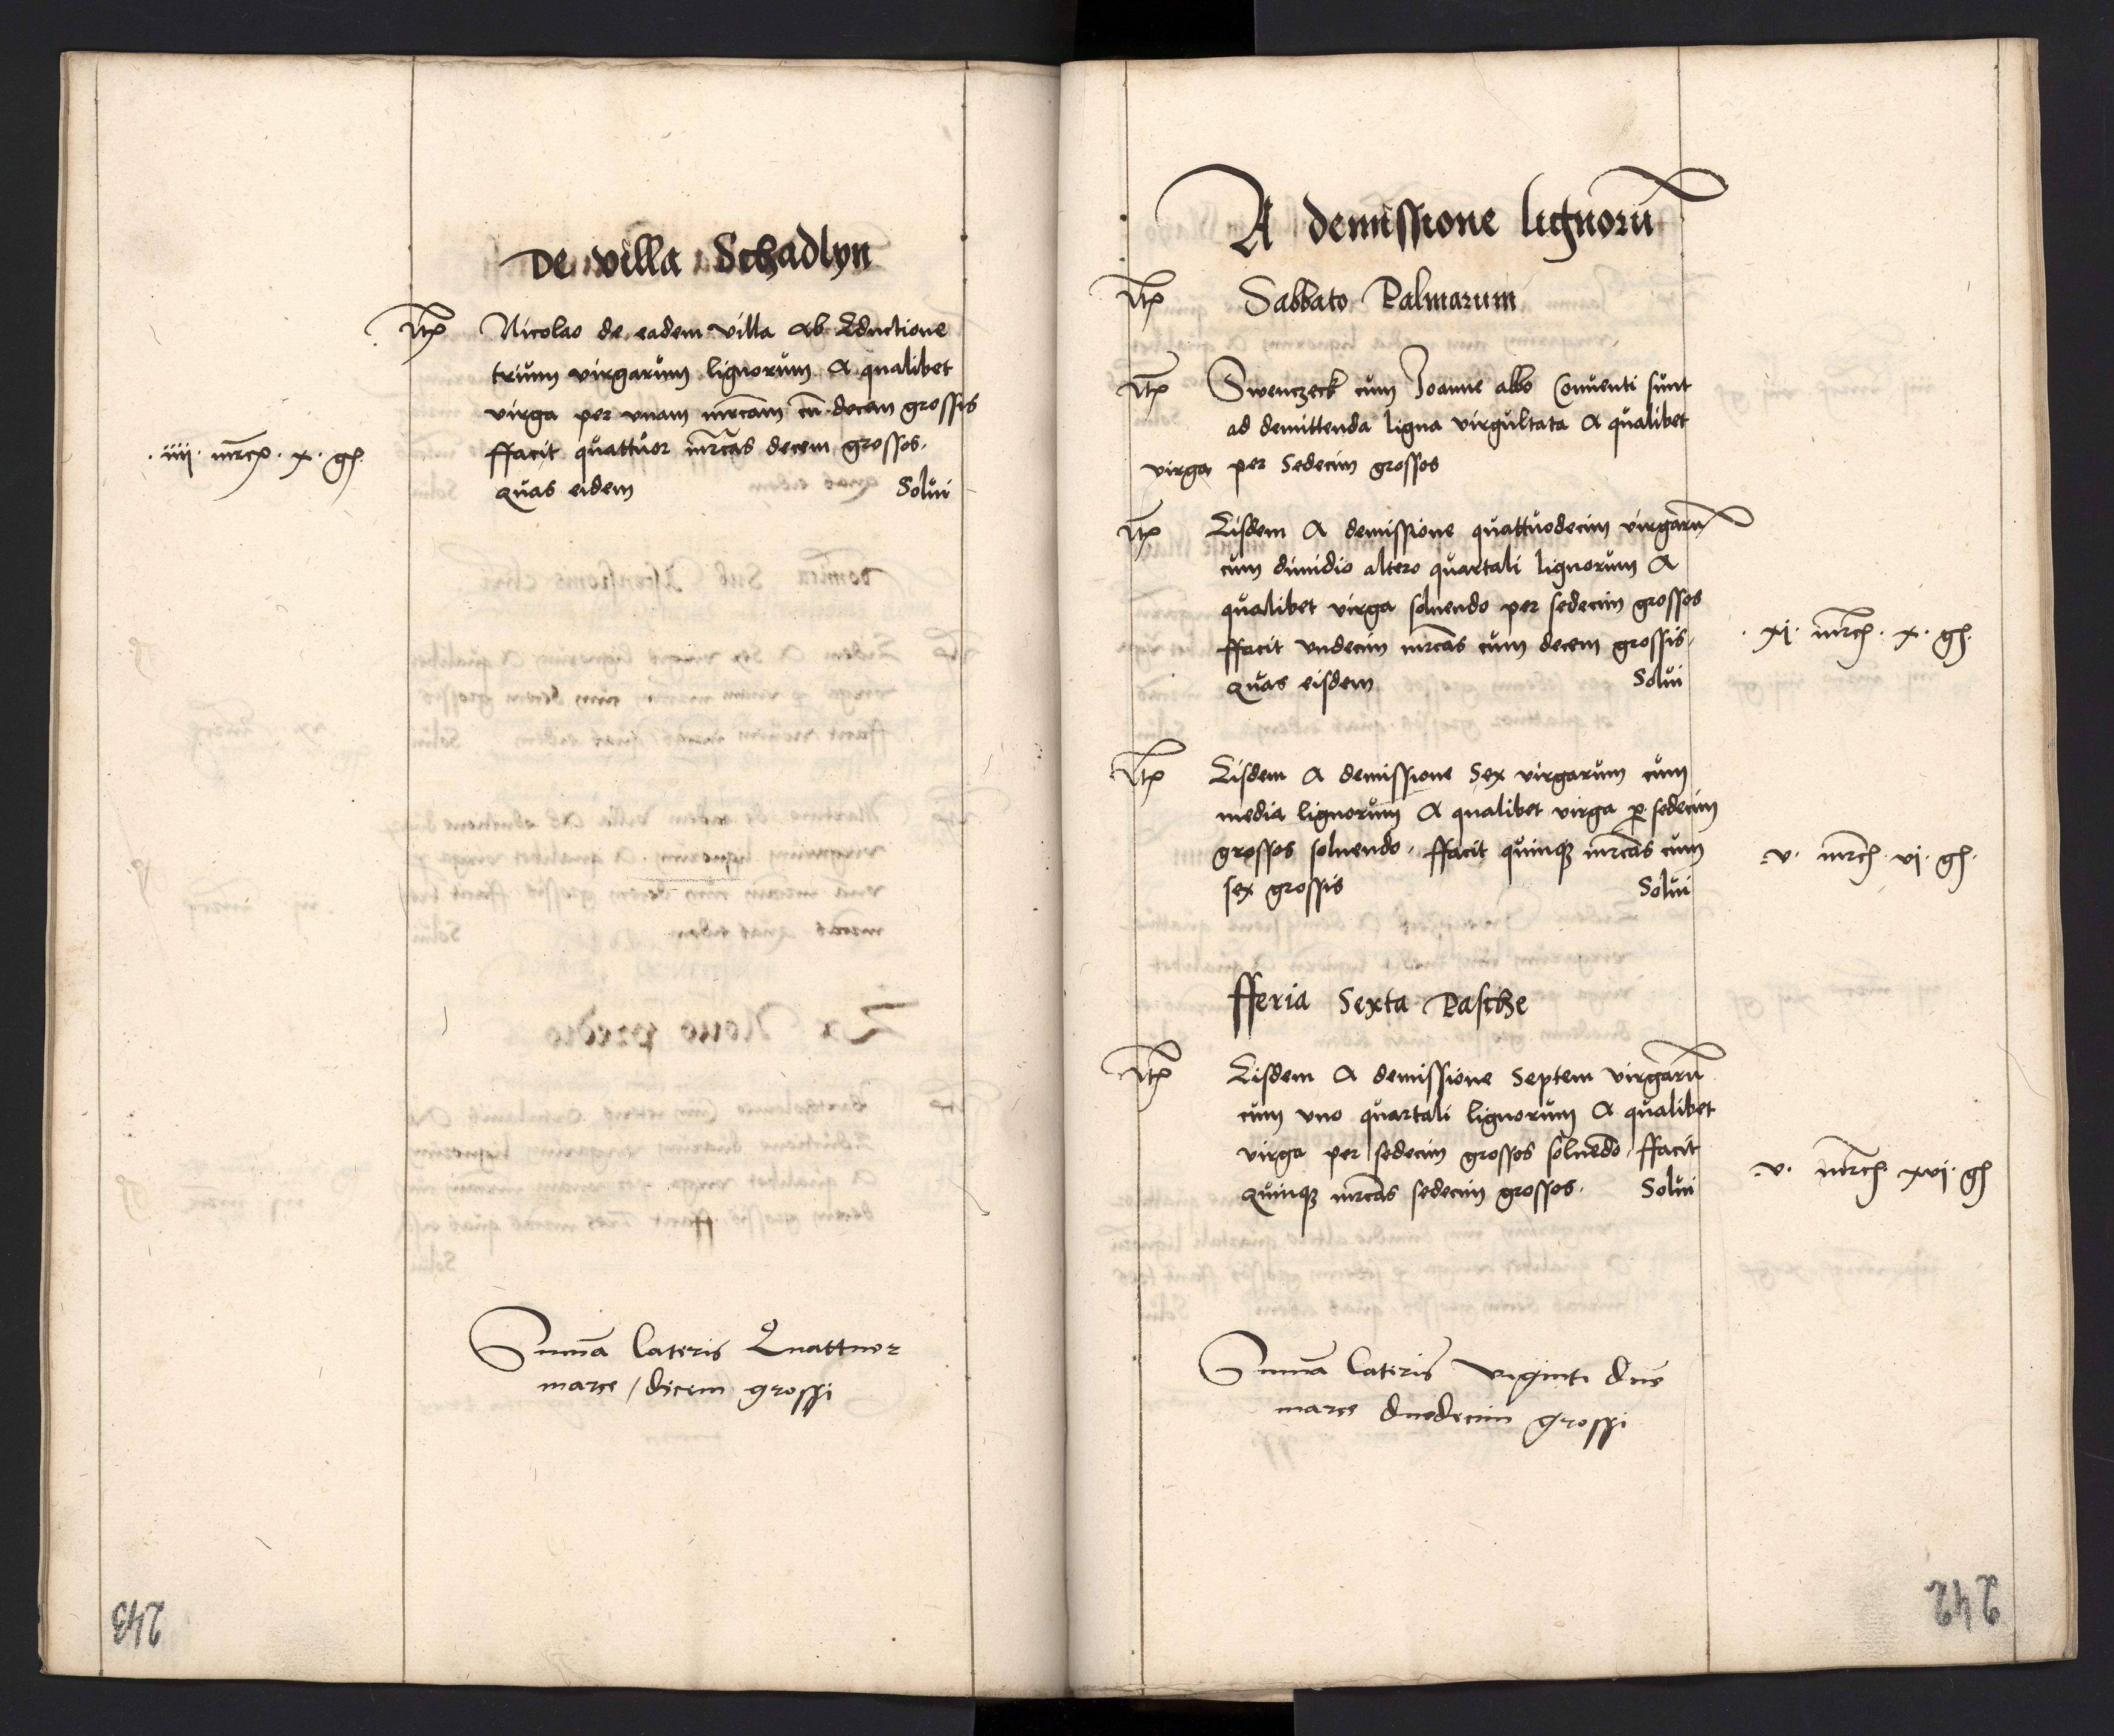 De villa Schadlyn
Itm Nicolao de eadem villa Ab Eductione
trium virgarum lignorum A qualibet
virga per vnam mrcam cu decem grossis
ffacit quattuor mrcas decem grossos.
.iiii. mrcs. x. gs.
Quas eidem Solui
Suma Lateris Quattuor
marce / decem grossi
243
A demissione lignoru
Itm Sabbato Palmarum
Itm Swenczeck cum Joanne albo Conuenti sunt
ad demittenda ligna virgultata A qualibet
virga per Sedecim grossos
Itm Eisdem A demissione quattuodecim virgaru
cum dimidio altero quartali lignorum A
qualibet virga soluendo per sedecim grossos
ffacit vndecim mrcas cum decem grossis.
.xi. mrcs. x. gs.
Quas eisdem Solui
Itm Eisdem A demissione Sex virgarum cum
media lignorum A qualibet virga p sedecim
grossos soluendo. ffacit quinq mrcas cum
.v. mrcs. vi. gs.
sex grossis Solui
fferia Sexta Pasche
Itm Eisdem A demissione Septem virgaru
cum vno quartali lignorum A qualibet
virga per sedecim grossos soluedo. ffacit
.v. mrcs. xvi. gs
Quinq mrcas sedecim grossos. Solui
Suma Lateris viginti due
marce duodecim grossi
242